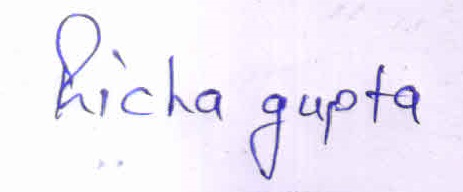 Richa gupta